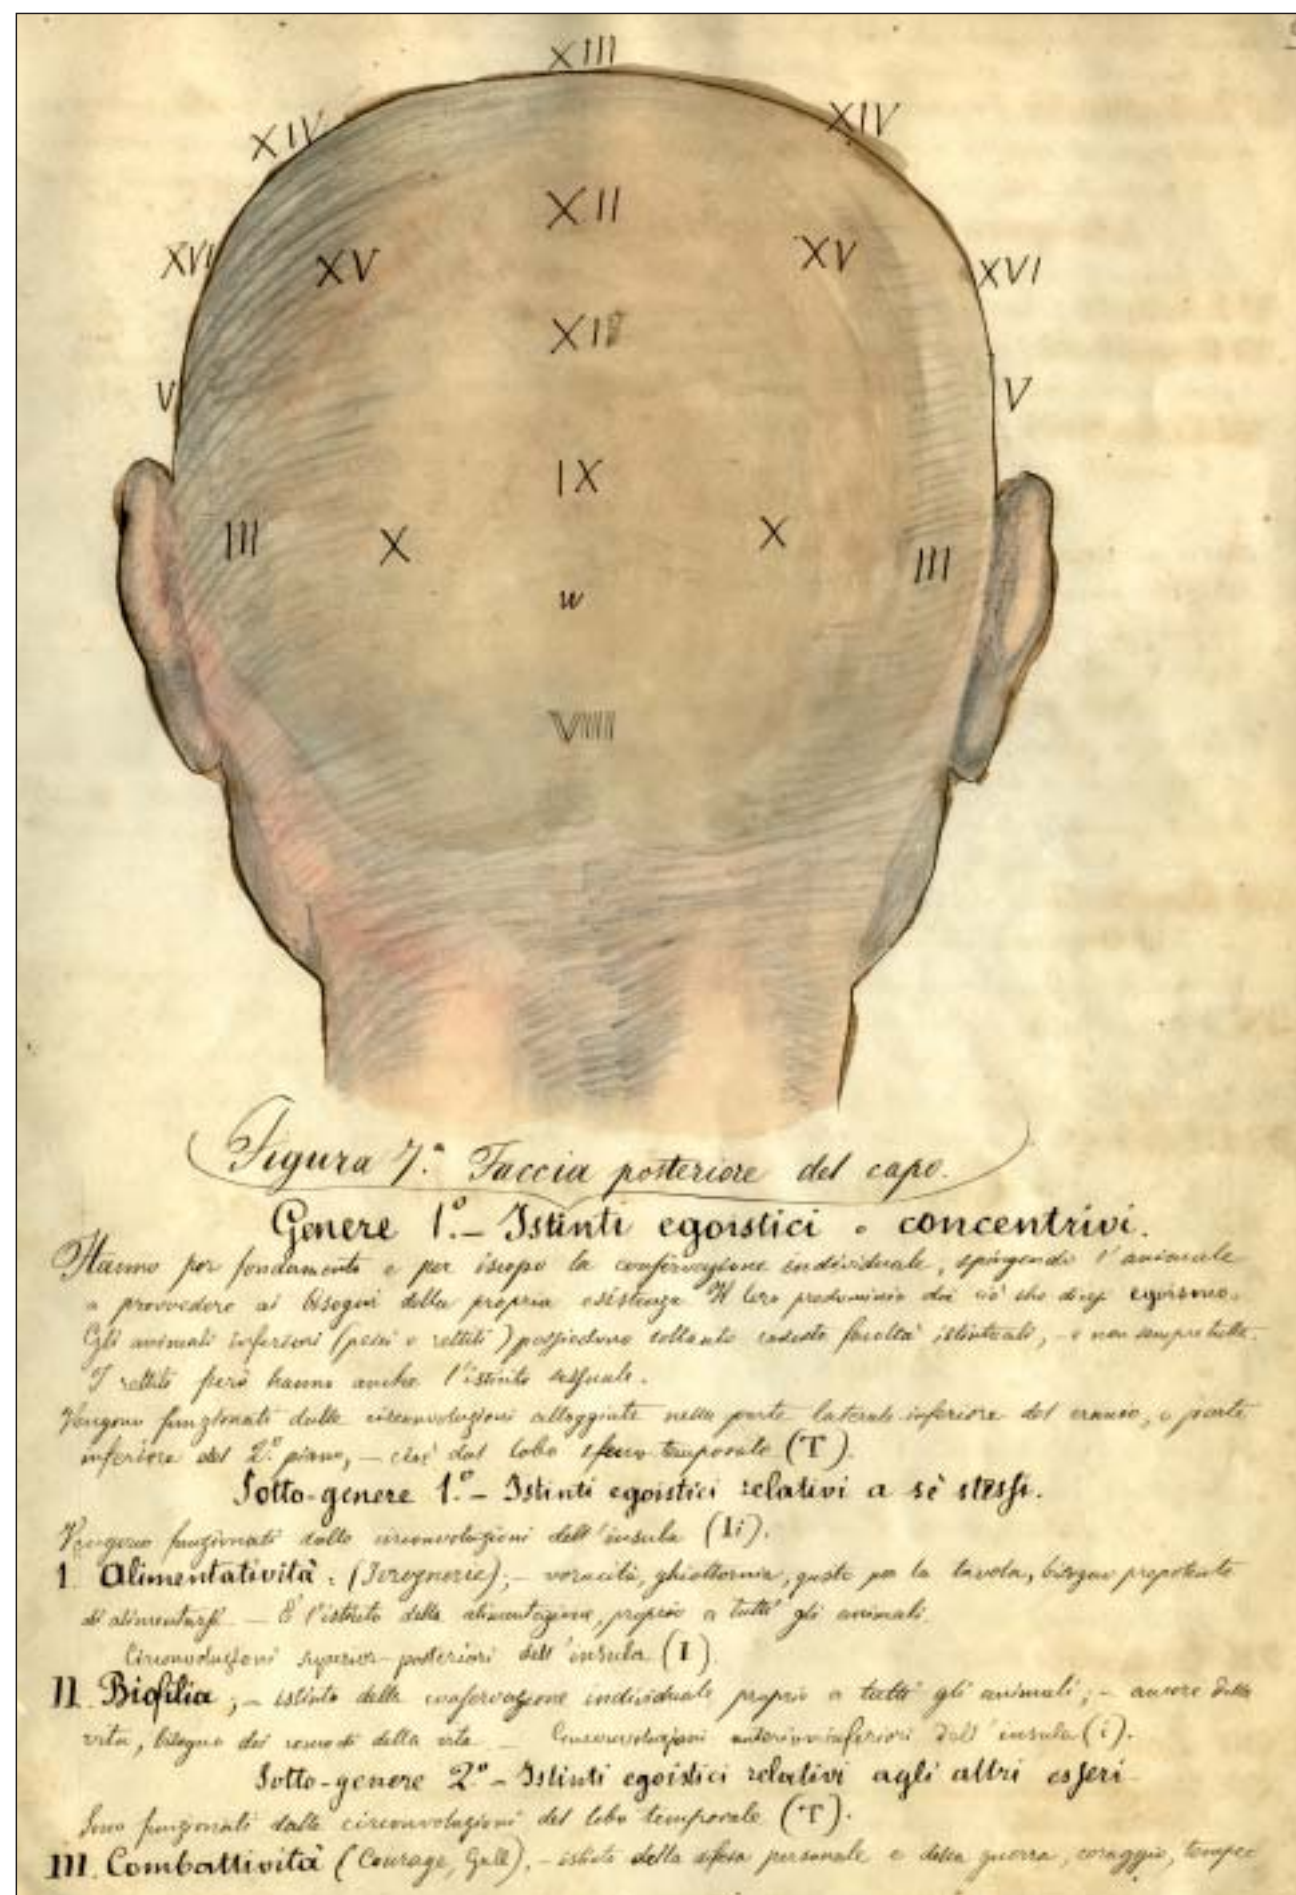 XIII
XIV XIV
XII
XVI XV XV XVI
XI
V V
IX
III X X III
w
VIII
Figura 7.ª Faccia posteriore del capo.
Genere 1.º – Istinti egoistici o concentrivi.
Hanno per fondamento e per iscopo la conservazione individuale, spingendo l'animale
a provvedere ai bisogni della propria esistenza Il loro predominio dà ciò che dicesi egoismo.
Gli animali inferiori (pesci e rettili) possiedono soltanto codeste facoltà istintuali, – e non sempre tutte.
I rettili però hanno anche l'istinto sessuale.
Vengono funzionati dalle circonvoluzioni alloggiate nella parte laterale inferiore del cranio, o parte
inferiore del 2.º piano, – cioè dal lobo sfeno-temporale (T).
Sotto-genere 1.º – Istinti egoistici relativi a sè stessi.
Vengono funzionati dalle circonvoluzioni dell'insula (Ii).
I Alimentatività. – voracità, ghiottornia, gusto per la tavola, bisogno prepotente
di alimentarsi – È l'istinto della alimentazione, proprio a tutti gli animali.
Circonvoluzioni superior-posteriori dell'insula (I).
II Biofilia, – istinto della conservazione individuale proprio a tutti gli animali; – amore della
vita, bisogno dei della vita – Circonvoluzioni anteriori-inferiori dell'insula (i).
Sotto-genere 2.º – Istinti egoistici relativi agli altri esseri
Sono funzionati dalle circonvoluzioni del lobo temporale (T).
III Combattività (Courage, Gall), – istinto della difesa personale e della guerra, coraggio, tempe